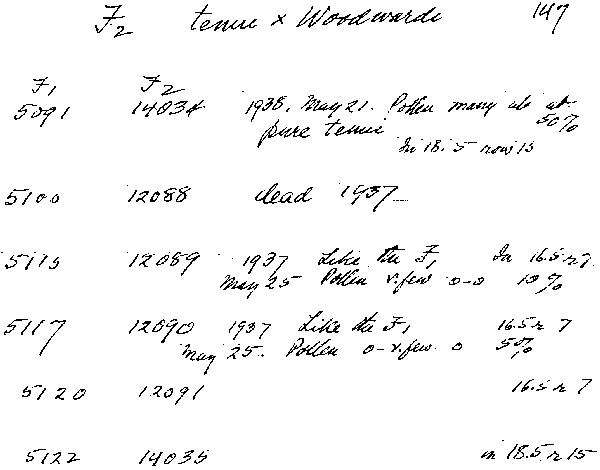 F2 tenue x Woodwardi 147
F1 F2
5091 14034 1938. May 21. Pollen many ab at 50%
pure tenue
In 18.5 row 15
5100 12088 dead 1937
5115 12089 1937 Like the F1 In 16.5 r 7
May 25 Pollen v. few o-o 10%
5117 12090 1937 Like the F1 16.5 r 7
May 25. Pollen o-v. few o 50%
5120 12091 16.5 r 7
5122 14035 in 18.5 r 15